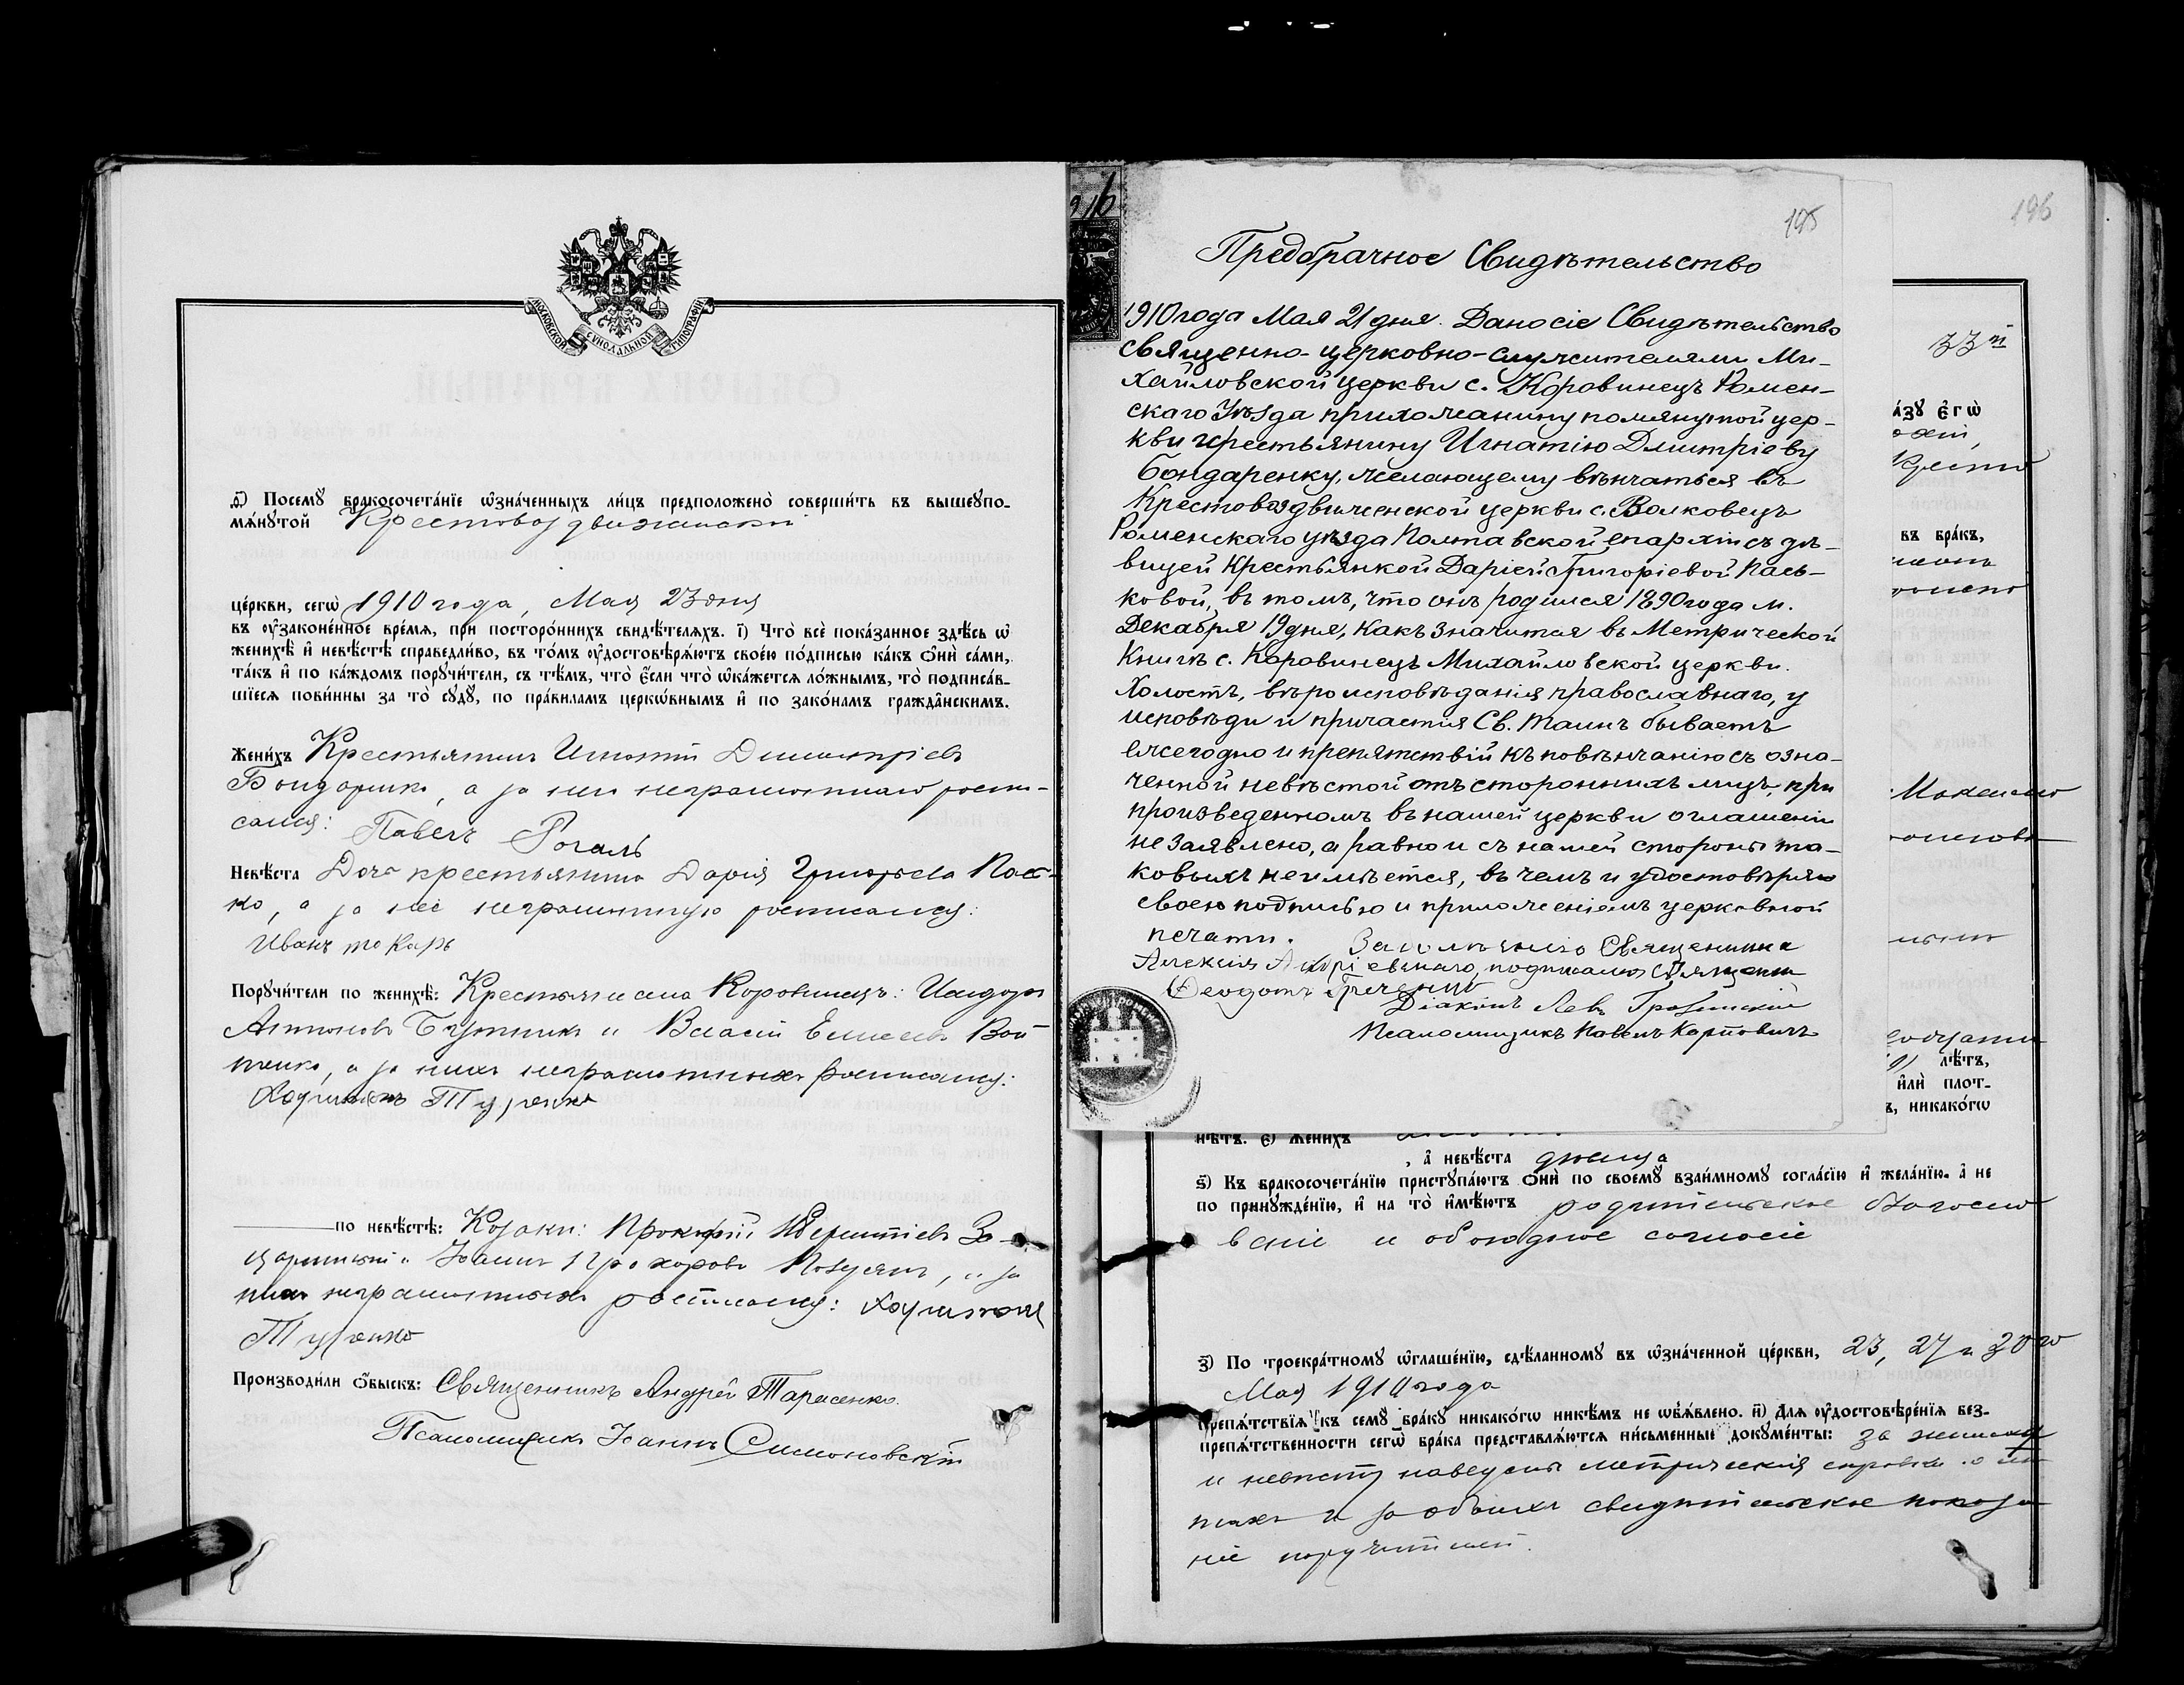 МОСКОВСКОЙ СѴНОДАЛЬНОЙ ТИПОГРАФІИ
д҃) Посемꙋ бракосочетаніе ѡзначенныхъ лицъ предположено совершить въ вышеꙋпо-
мянꙋтой Крестовоздвиженской
церкви, сегѡ 1910 года, Мая 23 дня
въ оузаконенное время, при постороннихъ свидѣтеляхъ. і҃) Что все показанное здѣсь ѡ
женихѣ и невѣстѣ справедливо, въ томъ оудостовѣряютъ своею подписью какъ ѻни сами,
такъ и по каждомъ порꙋчители, съ тѣмъ, что если что ѡкажется ложнымъ, то подписав-
шіеся повинны за то сꙋдꙋ, по правиламъ церковнымъ и по законамъ гражданскимъ.
Женихъ Крестьянинъ Игнатій Димитріевъ
Бондаренко, а за него неграмотнаго роспи-
сался: Павелъ Рогаль
Невѣста Дочь крестьянина Дарія Григорьева Пась-
ко, а за нее неграмотную росписался:
Иванъ токарь
Порꙋчители по женихѣ: Крестьяне села Коровинецъ: Исидоръ
Антоновъ Бутникъ и Власій Елисеевъ Вой
тенко, а за нихъ неграмотныхъ росписался:
Харитонъ Тузенко
по невѣстѣ: Козаки: Прокофій Терентіевъ За-
царинный и Іоаннъ Прохоровъ Позулянъ, а за
нихъ неграмотныхъ росписался: Харитонъ
Тузенко
Производили ѻбыскъ: Священникъ Андрей Тарасенко.
Псаломщикъ Іоаннъ Симоновскій
16
195
Предбрачное Свидѣтельство
1910 года Мая 21 дня. Дано сіе Свидѣтельство
священно-церковно-служителями Ми-
хайловской церкви с. Коровинецъ Ромен-
скаго Уѣзда прихожанину помянутой цер-
кви крестьянину Игнатію Дмитріеву
Бондаренку, желающему вѣнчаться въ
Крестовоздвиженской церкви с. Волковецъ
Роменскаго уѣзда Полтавской епархіи съ дѣ-
вицей Крестьянкой Даріей Григоріевой Пась-
ковой, въ томъ, что онъ родился 1890 года м.
Декабря 19 дня, какъ значится въ Метрической
Книгѣ с. Коровинецъ Михайловской церкви.
Холостъ, вѣроисповѣданія православнаго, у
исповѣди и причастія Св. Таинъ бываетъ
ежегодно и препятствій къ повѣнчанію съ озна-
ченной невѣстой отъ стороннихъ лицъ, при
произведенномъ въ нашей церкви оглашеніи
не заявлено, а равно и съ нашей стороны та-
ковыхъ неимѣется, въ чемъ и удостовѣряю
своею подписью и приложеніемъ церковной
печати.
Священника
Алексія подписался Священ
Ѳеодотъ
Діаконъ Левъ
Псаломщикъ Павелъ Карповичъ
196
33й
азꙋ егѡ
въ бракъ,
лѣтъ,
или плот-
ъ, никакогѡ
нѣтъ. є҃) Женихъ
, а невѣста дѣвица
ѕ҃) Къ бракосочетанію приступаютъ ѻни по своемꙋ взаимномꙋ согласію и желанію, а не
по принꙋжденію, и на то имѣютъ родительское благосло
веніе и обоюдное согласіе
з҃) По троекратномꙋ ѡглашенію, сдѣланномꙋ въ ѡзначенной церкви, 23, 27 и 30го
Мая 1910 года
препятствія къ семꙋ бракꙋ никакогѡ никѣмъ не ѡбъявлено. и҃) Для оудостовѣренія без-
препятственности сегѡ брака представляются письменные докꙋменты: за жениха
и невѣсту наведены метрическія справки о лѣ
тахъ и за обоихъ свидѣтельское показа
ніе поручителей.